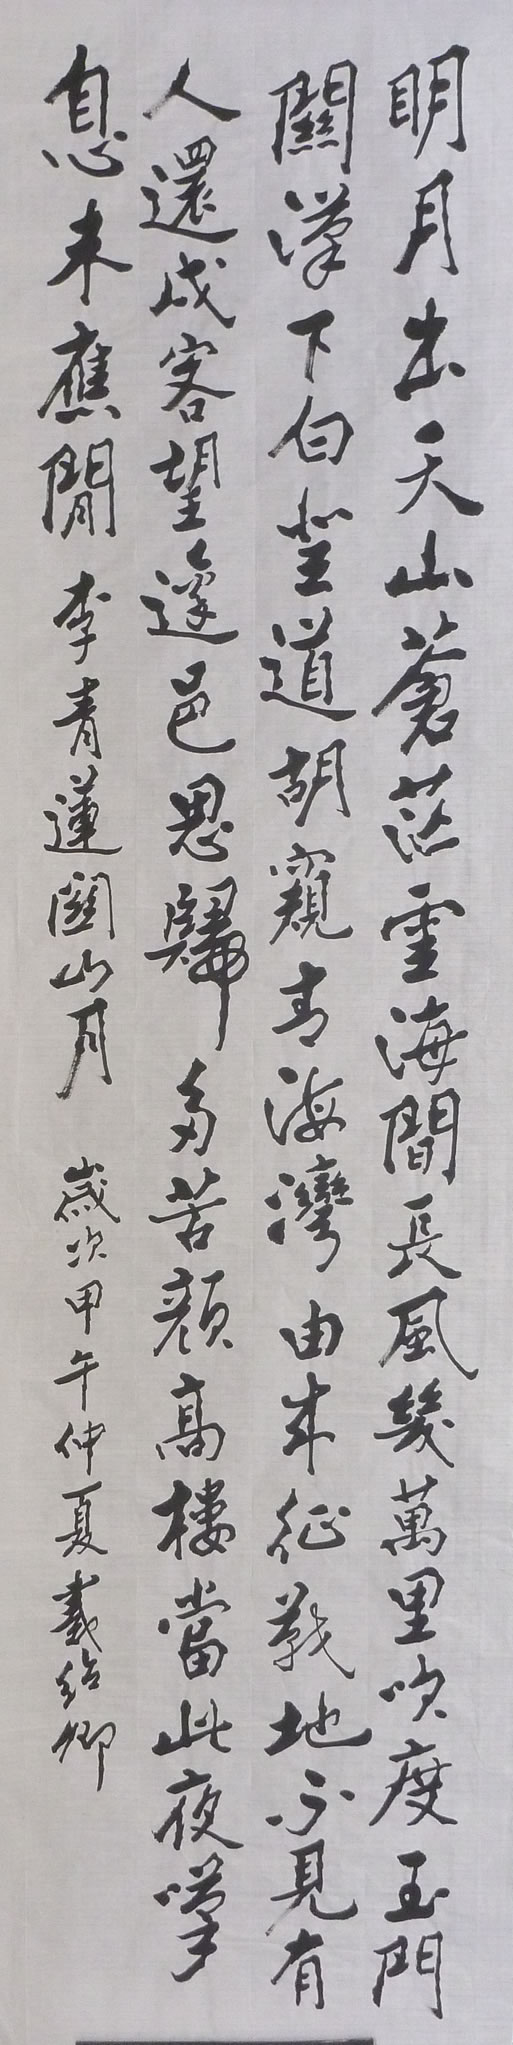 明月出天山蒼茫雲海間長風幾萬里吹度玉門
關漢下白登道胡窺青海灣由來征戰地不見有
人還戍客望邊邑思歸多苦顏高樓當此夜嘆
息未應閒 李青蓮關山月 歲次甲午仲夏戴紹卿